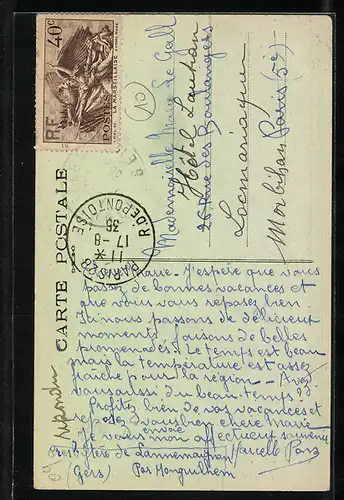 CARTE POSTALE
RF 40c
POSTES
LA MARSEILLAISE
R. DE PONTOISE
11 *
17 - 8
36
PARIS
(10)
Mademoiselle Marie Le Gall
Hôtel Lautram
26 Rue des Boulangers
Locmariaquer
Paris (5e)
Morbihan
Marie - J'espère que vous
passez de bonnes vacances et
que vous vous reposez bien.
Ici nous passons de délicieux
moments, faisons de belles
promenades. Le temps est beau
mais la température est assez
fraîche pour la région - Avez
vous aussi du beau temps ?
Profitez bien de vos vacances et
reposez vous bien chère Marie
Je vous envoie mon affectueux souvenir
Marcelle
Presbytère de Lannemaignan
(Gers) Par Monguilhem
répondu